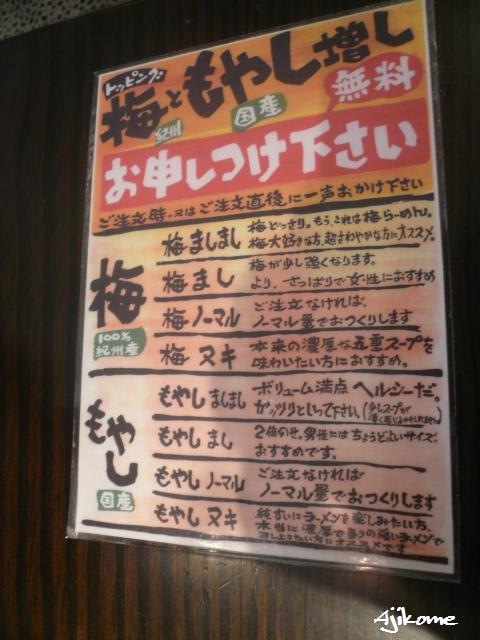 トッピング
梅ともやし増し
紀州
国産
無料
お申しつけ下さい
ご注文時・又はご注文直後に一声おかけ下さい
梅
100%
紀州産
梅ましまし
梅どっさり。もう、これは梅らーめん。
梅大好きな方、超さわやかな方にオススメ。
梅まし
梅が少し強くなります。
より、さっぱりで女性におすすめ
梅ノーマル
ご注文なければ、
ノーマル量でおつくりします
梅ヌキ
本来の濃厚な五重スープを
味わいたい方におすすめ。
もやし
国産
もやしましまし
ボリューム満点 ヘルシーだ。
ガッツリといって下さい。(少しスープが
薄く感じるかもしれません)
もやしまし
2倍のせ。男性にはちょうどよいサイズ。
おすすめです。
もやしノーマル
ご注文なければ
ノーマル量でおつくりします
もやしヌキ
純すいにラーメンを楽しみたい方、
本当に濃厚で香りの強いラーメンで
召し上りたい方にオススメです
Ajikome